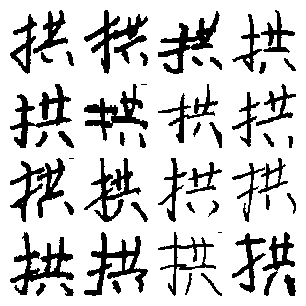 拱拱拱拱
拱拱拱拱
拱拱拱拱
拱拱拱拱